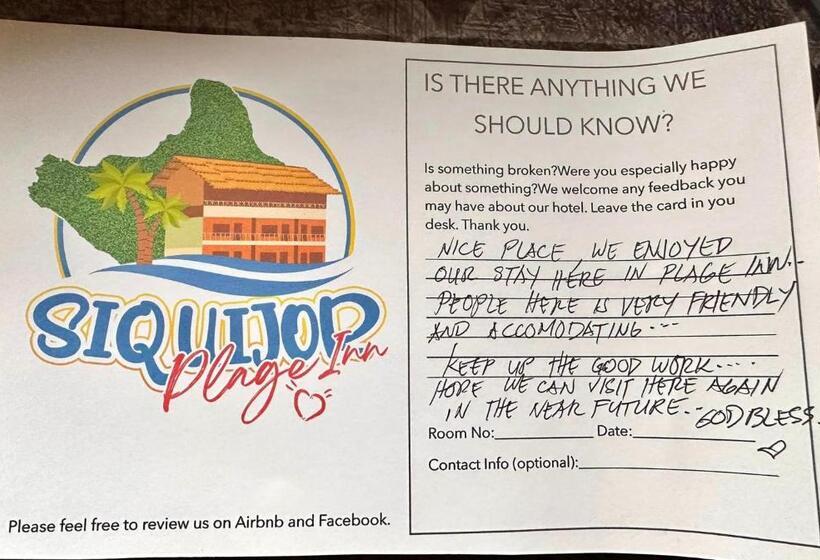 SIQUIJOD
Plage Inn
Please feel free to review us on Airbnb and Facebook.
IS THERE ANYTHING WE
SHOULD KNOW?
Is something broken?Were you especially happy
about something?We welcome any feedback you
may have about our hotel. Leave the card in you
desk. Thank you.
NICE PLACE, WE ENJOYED
OUR STAY HERE IN PLAGE INN..
PEOPLE HERE IS VERY FRIENDLY
AND ACCOMODATING...
KEEP UP THE GOOD WORK....
HOPE WE CAN VISIT HERE AGAIN
IN THE NEAR FUTURE.. GOD BLESS.
Room No: Date:
Contact Info (optional):